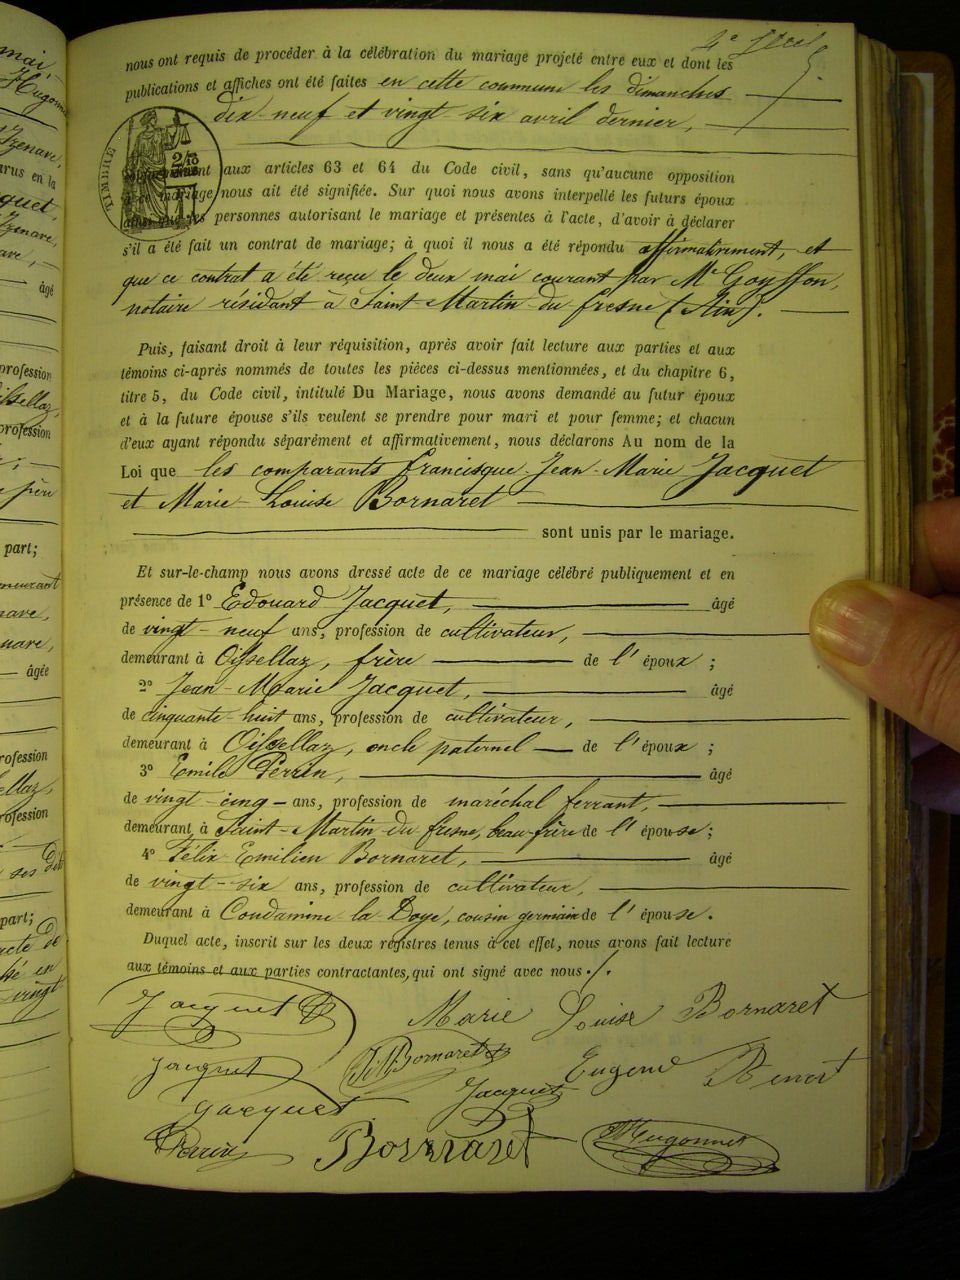 mai,
Hugon
Izenave,
quet,
Izenave,
âgé
profession
profession
part;
nave,
âgée
profession
profession
ses dits
part;
acte de
vingt
4e
nous ont requis de procéder à la célébration du mariage projeté entre eux et dont les
publications et affiches ont été faites en cette commune les dimanches
dix-neuf et vingt six avril dernier,
TIMBRE
aux articles 63 et 64 du Code civil, sans qu'aucune opposition
mariage nous ait été signifiée. Sur quoi nous avons interpellé les futurs époux
ainsi que les personnes autorisant le mariage et présentes à l'acte, d'avoir à déclarer
s'il a été fait un contrat de mariage; à quoi il nous a été répondu affirmativement, et
que ce contrat a été reçu le deux mai courant par Me Goyffon,
notaire résidant à Saint-Martin du fresne (Ain).
Puis, faisant droit à leur réquisition, après avoir fait lecture aux parties et aux
témoins ci-après nommés de toutes les pièces ci-dessus mentionnées, et du chapitre 6,
titre 5, du Code civil, intitulé Du Mariage, nous avons demandé au futur époux
et à la future épouse s'ils veulent se prendre pour mari et pour femme; et chacun
d'eux ayant répondu séparément et affirmativement, nous déclarons Au nom de la
Loi que les comparants Francisque-Jean-Marie Jacquet
et Marie-Louise Bornaret
sont unis par le mariage.
Et sur-le-champ nous avons dressé acte de ce mariage célébré publiquement et en
présence de 1° Edouard Jacquet, âgé
de vingt-neuf ans, profession de cultivateur,
demeurant à Oisselaz, frère de l'époux ;
2° Jean-Marie Jacquet, âgé
de cinquante-huit ans, profession de cultivateur,
demeurant à Oisselaz, oncle paternel de l'époux ;
3° Emile Perrin, âgé
de vingt-cinq ans, profession de maréchal ferrant,
demeurant à Saint-Martin du fresne, beau-frère de l'épouse ;
4° Félix Emilien Bornaret, âgé
de vingt-six ans, profession de cultivateur,
demeurant à Condamine la Doye, cousin germain de l'épouse.
Duquel acte, inscrit sur les deux registres tenus à cet effet, nous avons fait lecture
aux témoins et aux parties contractantes, qui ont signé avec nous ./.
Jacquet
Marie Louise Bornaret
Jacquet
Bornaret
Jacquet
Eugène
Jacquet
Perrin
Bornaret
Hugonnet